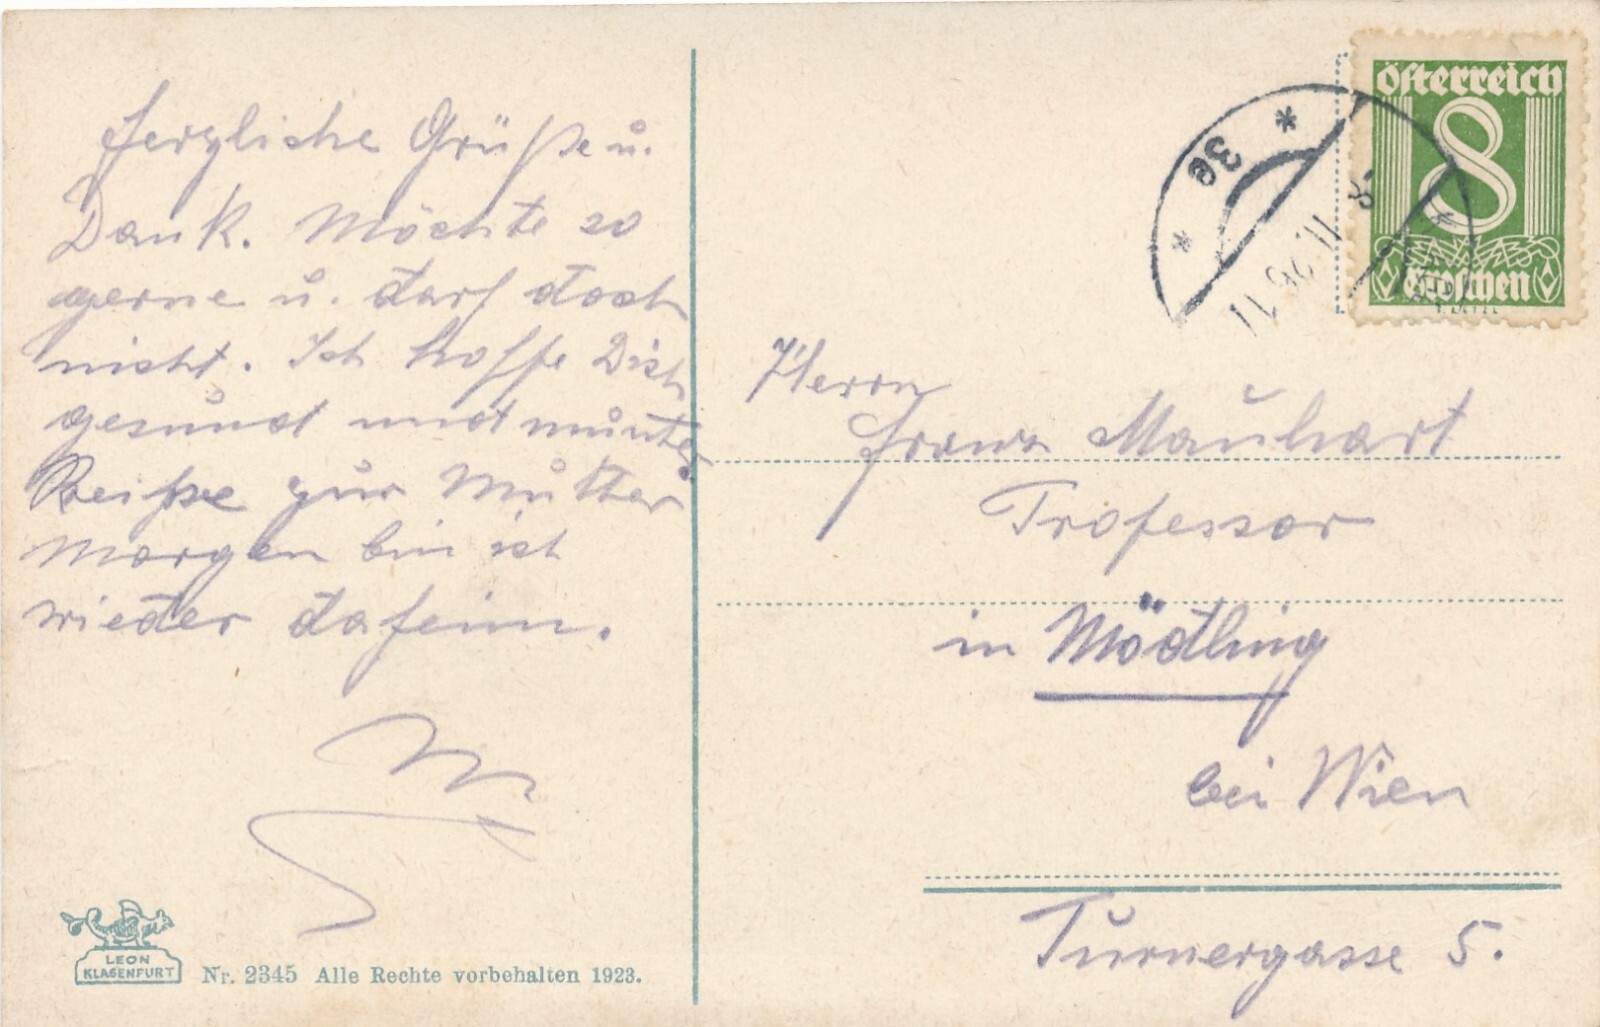 Herzliche Grüße u.
Dank. Möchte so
gerne u. darf doch
nicht. Ich hoffe Dich
gesund und munter.
Reise zur Mutter
Morgen bin ich
wieder daheim.
LEON
KLAGENFURT
Nr. 2345 Alle Rechte vorbehalten 1923.
Österreich
8
Groschen
* 3e *
8 II 26 11
Herrn
Franz Mauhart
Professor
in Mödling
bei Wien
Turnergasse 5.